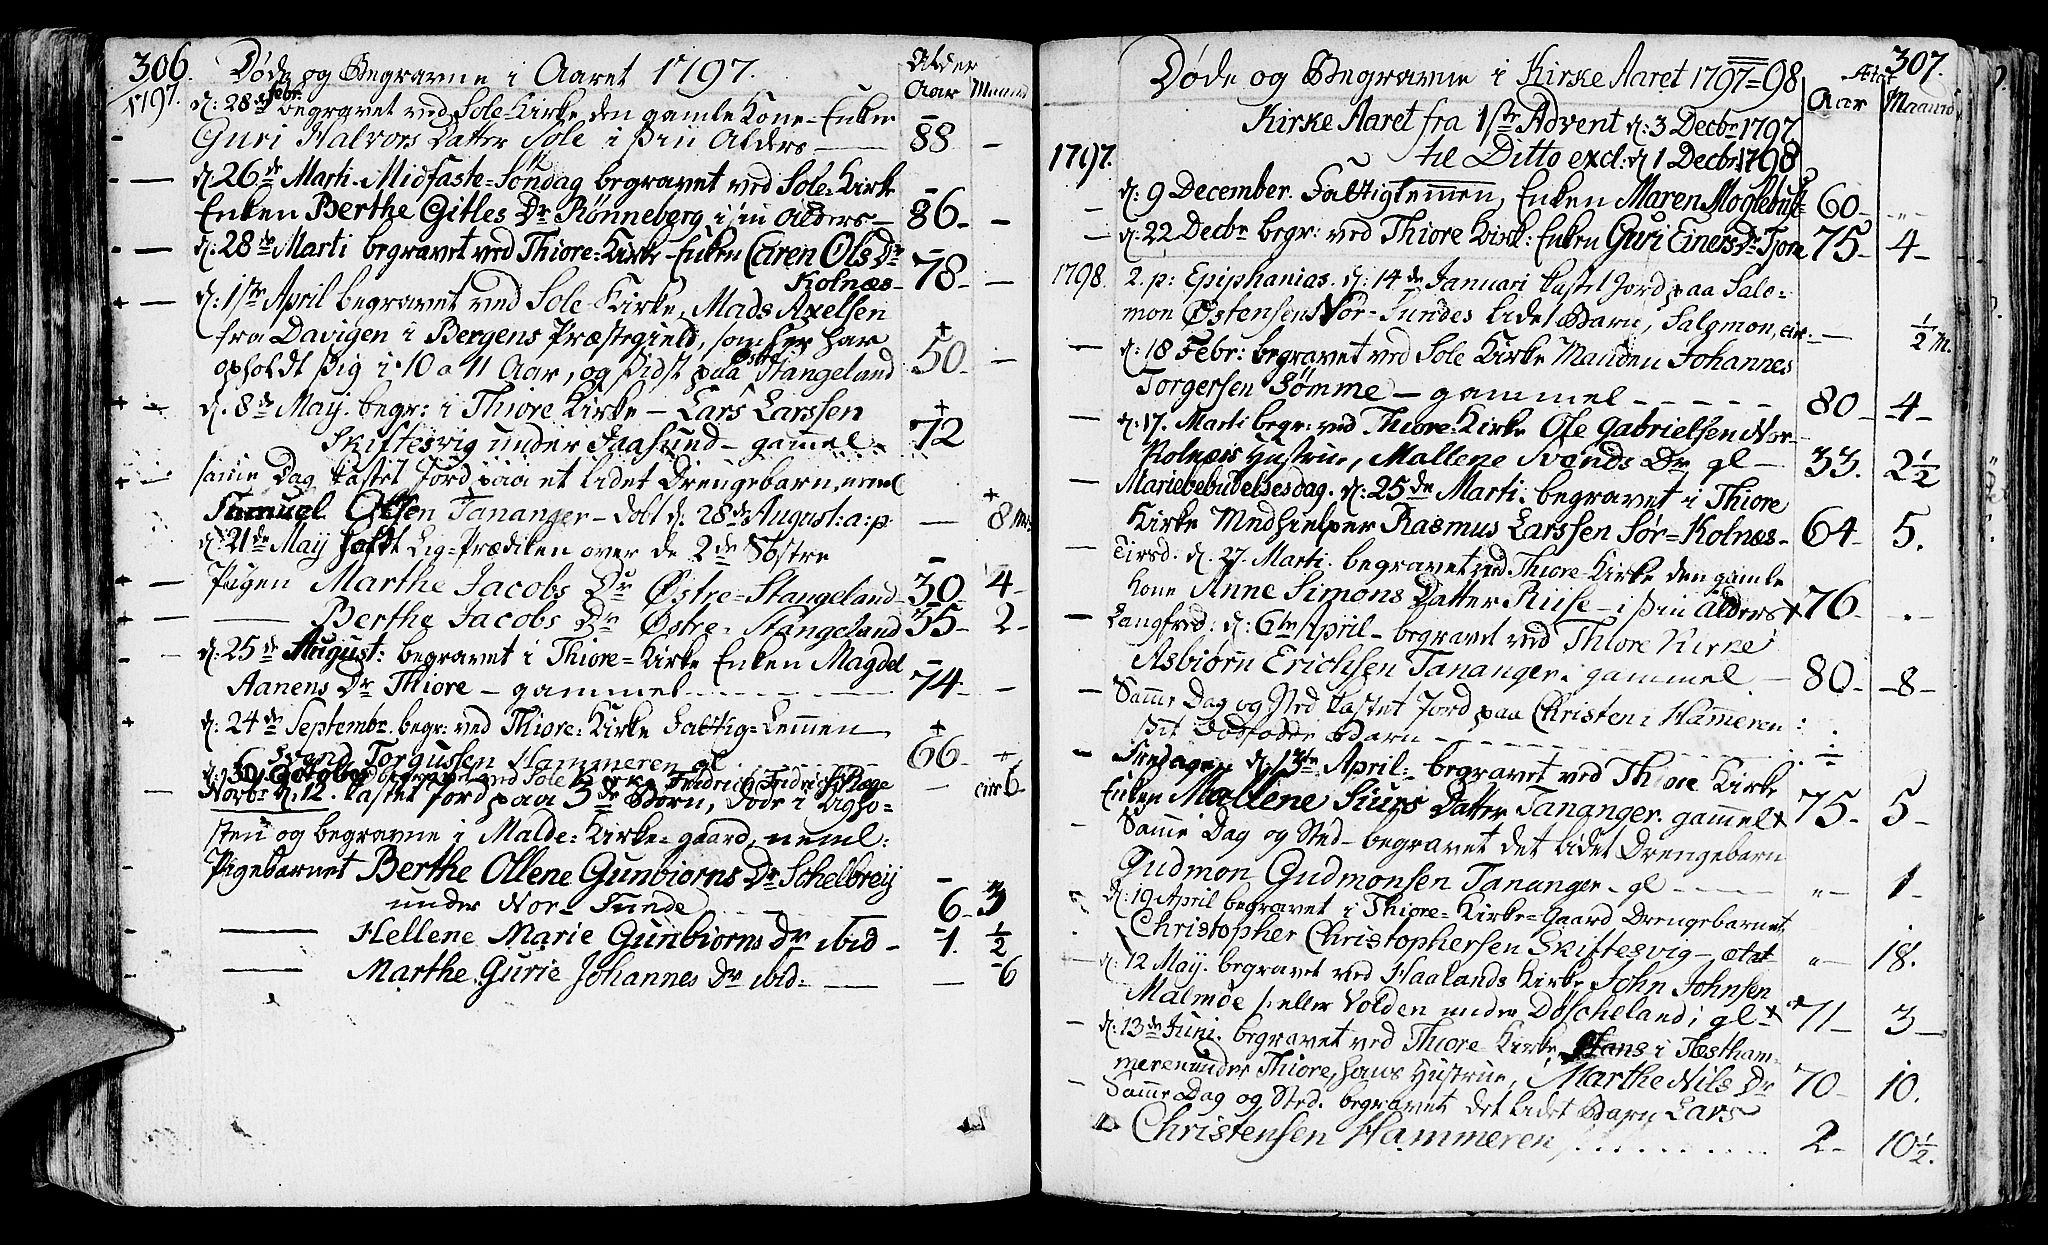 306.
1797.
Døde og Begravne i Aaret 1797.
Alder
Aar Maaned
d: 28de Febr. begravet ved Sole-Kirke den gamle Kone-Enke
Guri Halvors Datter Sole i sin Alders — 88 —
d. 26de Marti. Midfaste-Søndag begravet ved Sole-Kirke
Enken Berthe Gitles Dr Rønneberg, i sin Alders — 86 —
d. 28de Marti begravet ved Thiore-Kirke Enken Caren Ols Dr
Kolnæs — 78 —
d: 1ste April begravet ved Sole Kirke, Mads Axelsen
fra Davigen i Bergens Præstegield, som her har
opholdt sig i 10 a 11 Aar, og sidst paa Østre Stangeland 50 —
d. 8de Maij. begr: i Thiore Kirke — Lars Larssen
Skiftesvig under Jaasund — gammel 72
samme Dag kastet Jord paa et lidet Drengebarn, neml
Samuel Olsen Tananger — døbt d: 28de August: a: p: — 8 Mr.
d: 21de Maij holdt Lig-Prædiken over de 2de Søstre
Pigen Marthe Jacobs Dr Østre-Stangeland 30 4
— Berthe Jacobs Dr Østre-Stangeland 35 2
d. 25de August: begravet i Thiore-Kirke Enken Magdel
Aanens Dr Thiore — gammel 74 —
d: 24de Septembr. begr: ved Thiore-Kirke Fattig-Lemmen
Svend Torgussen Hammeren gl 66
d: 30 October begravet ved Sole Kirke Fredrich Fredrichs Ræge — circ 6
Novbr d. 12. kastet Jord paa 3de Børn, døde i Kigho-
sten og begravne i Malde-Kirke-gaard, neml:
Pigebarnet Berthe Ollene Gunbiorns Dr Schelbreij
under Nor-Sunde 6 3
— Hellene Marie Gunbiorns Dr ibid — 1. ½
— Marthe Gurie Johannes Dr ibid: — 6
307.
Døde og Begravne i Kirke Aaret 1797=98
Ætat
Aar Maaned
Kirke Aaret fra 1ste Advent d: 3 Decbr 1797
til Ditto excl: d 1 Decbr 1798
1797.
d: 9 December. Fattiglemmen, Enken Maren Moglebust 60 —
d: 22 Decbr begr: ved Thiore Kirk: Enken Guri Einers Dr Tjore 75 4
1798. 2. p: Epiphanias. d: 14de Januari kastet Jord paa Salo-
mon Østensen Nor-Sundes lidet Barn, Salomon, circ: — ½ M.
d: 18 Febr: begravet ved Sole Kirke Manden Johannes
Torgersen Sømme — gammel 80 4
d: 17. Marti begr: ved Thiore-Kirke Ole Gabrielsen Nor-
Kolnæs Hustrue, Mallene Svends Dr gl — 33. 2½
Mariebebudelsesdag. d: 25de Marti. begravet i Thiore
Kirke Medhielper Rasmus Larssen Sør-Kolnæs 64 5.
Tirsd: d. 27. Marti. begravet ved Thiore-Kirke den gamle
Kone Anne Simons Datter Riise — i sin Alders 76
Langfred: d: 6te April — begravet ved Thiore Kirke
Asbiørn Erichsen Tananger: gammel 80 8
Samme Dag og Sted kastet Jord paa Christen i Hammeren
sit Dødfødde Barn
Fredagen d: 13de April: begravet ved Thiore Kirke
Enken Mallene Siurs Datter Tananger gammel 75 5
Samme Dag og Sted — begravet det lidet Drengebarn
Gudmon Gudmonsen Tananger — gl — 1
d: 19 April begravet i Thiore-Kirke-Gaard Drengebarnet
Christopher Christophersen Skiftesvig — ætat 18.
d: 12 Maij. begravet ved Haalands Kirke John Johnsen
Malmøe eller Volden under Døscheland; gl 71 3
d: 13de Juni. begravet ved Thiore Kirke Hans i Tæstham-
meren under Thiore, hans Hustrue, Marthe Nils Dr 70 10.
Samme Dag og Sted. begravet det lidet Barn Lars
Christensen Hammeren 2 10½.